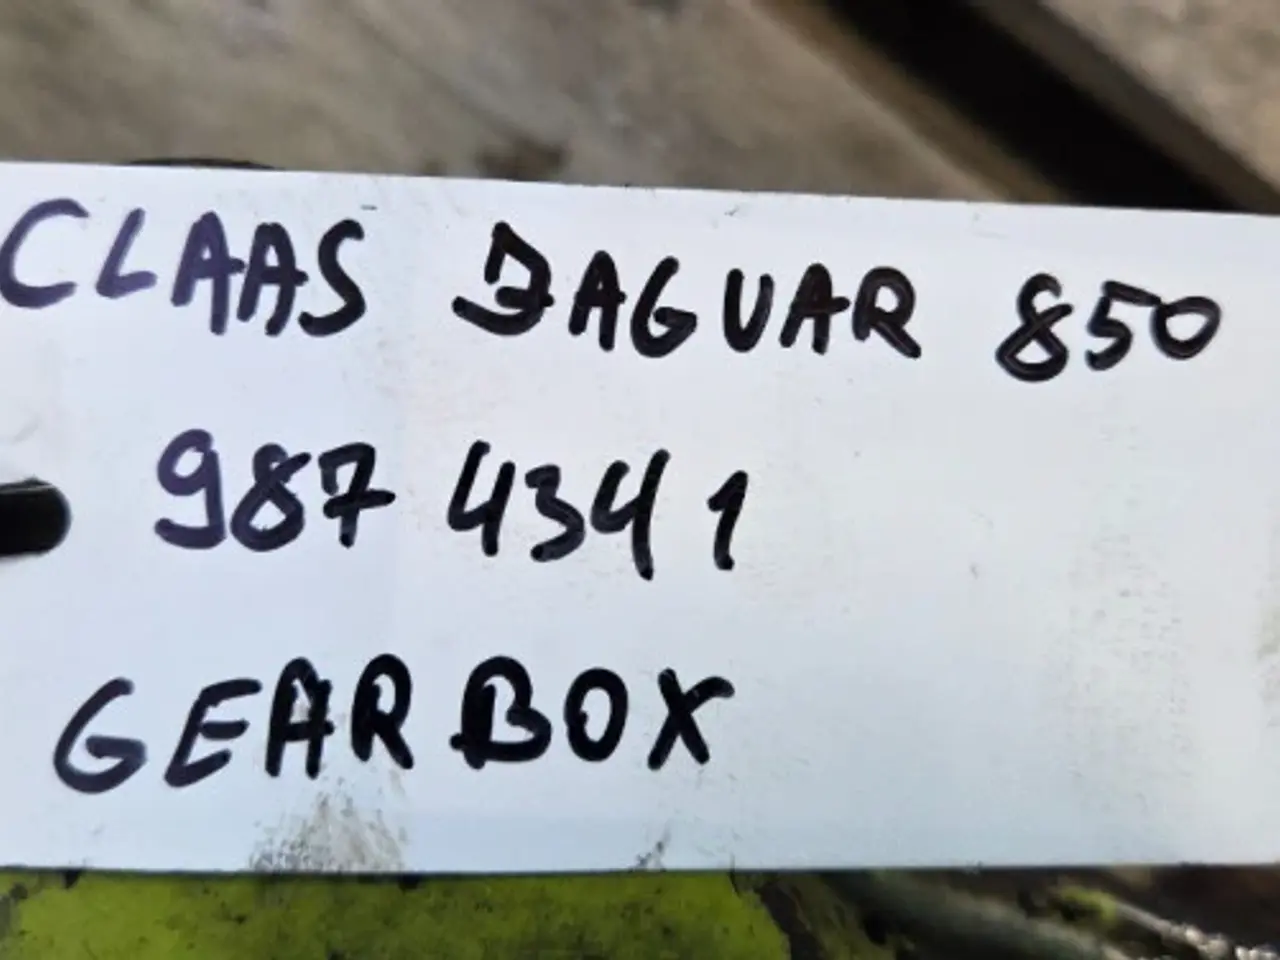 CLAAS JAGUAR 850
987 4341
GEARBOX